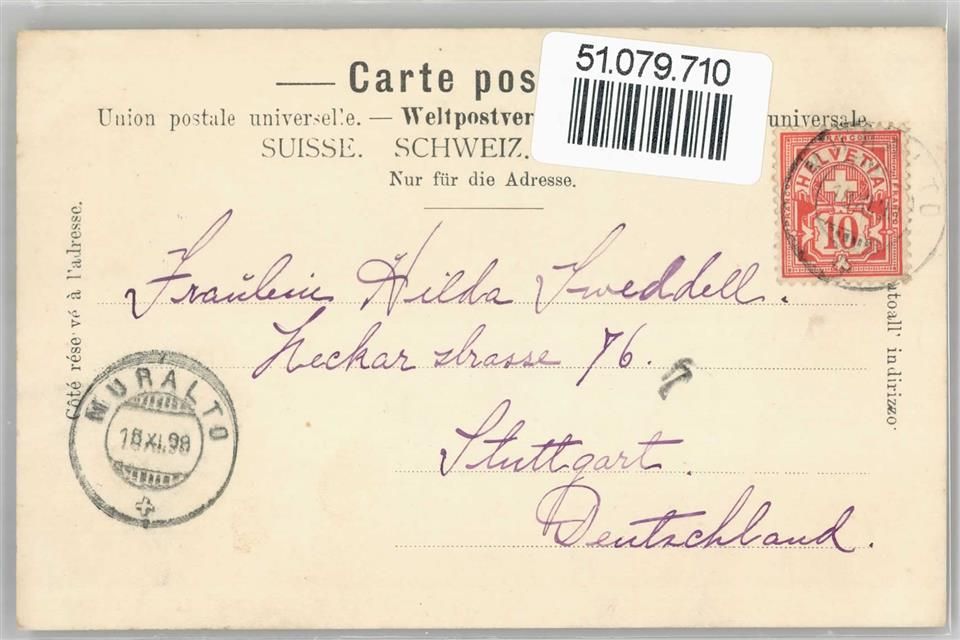 51.079.710
Carte pos
Union postale universelle. — Weltpostver universale.
SUISSE. SCHWEIZ.
Nur für die Adresse.
Côté réservé à l'adresse.
HELVETIA
FRANCO
10
Fräulein Hilda Sweddell.
Neckar strasse 76.
Stuttgart.
Deutschland.
MURALTO
18 XI. 98
lato all' indirizzo